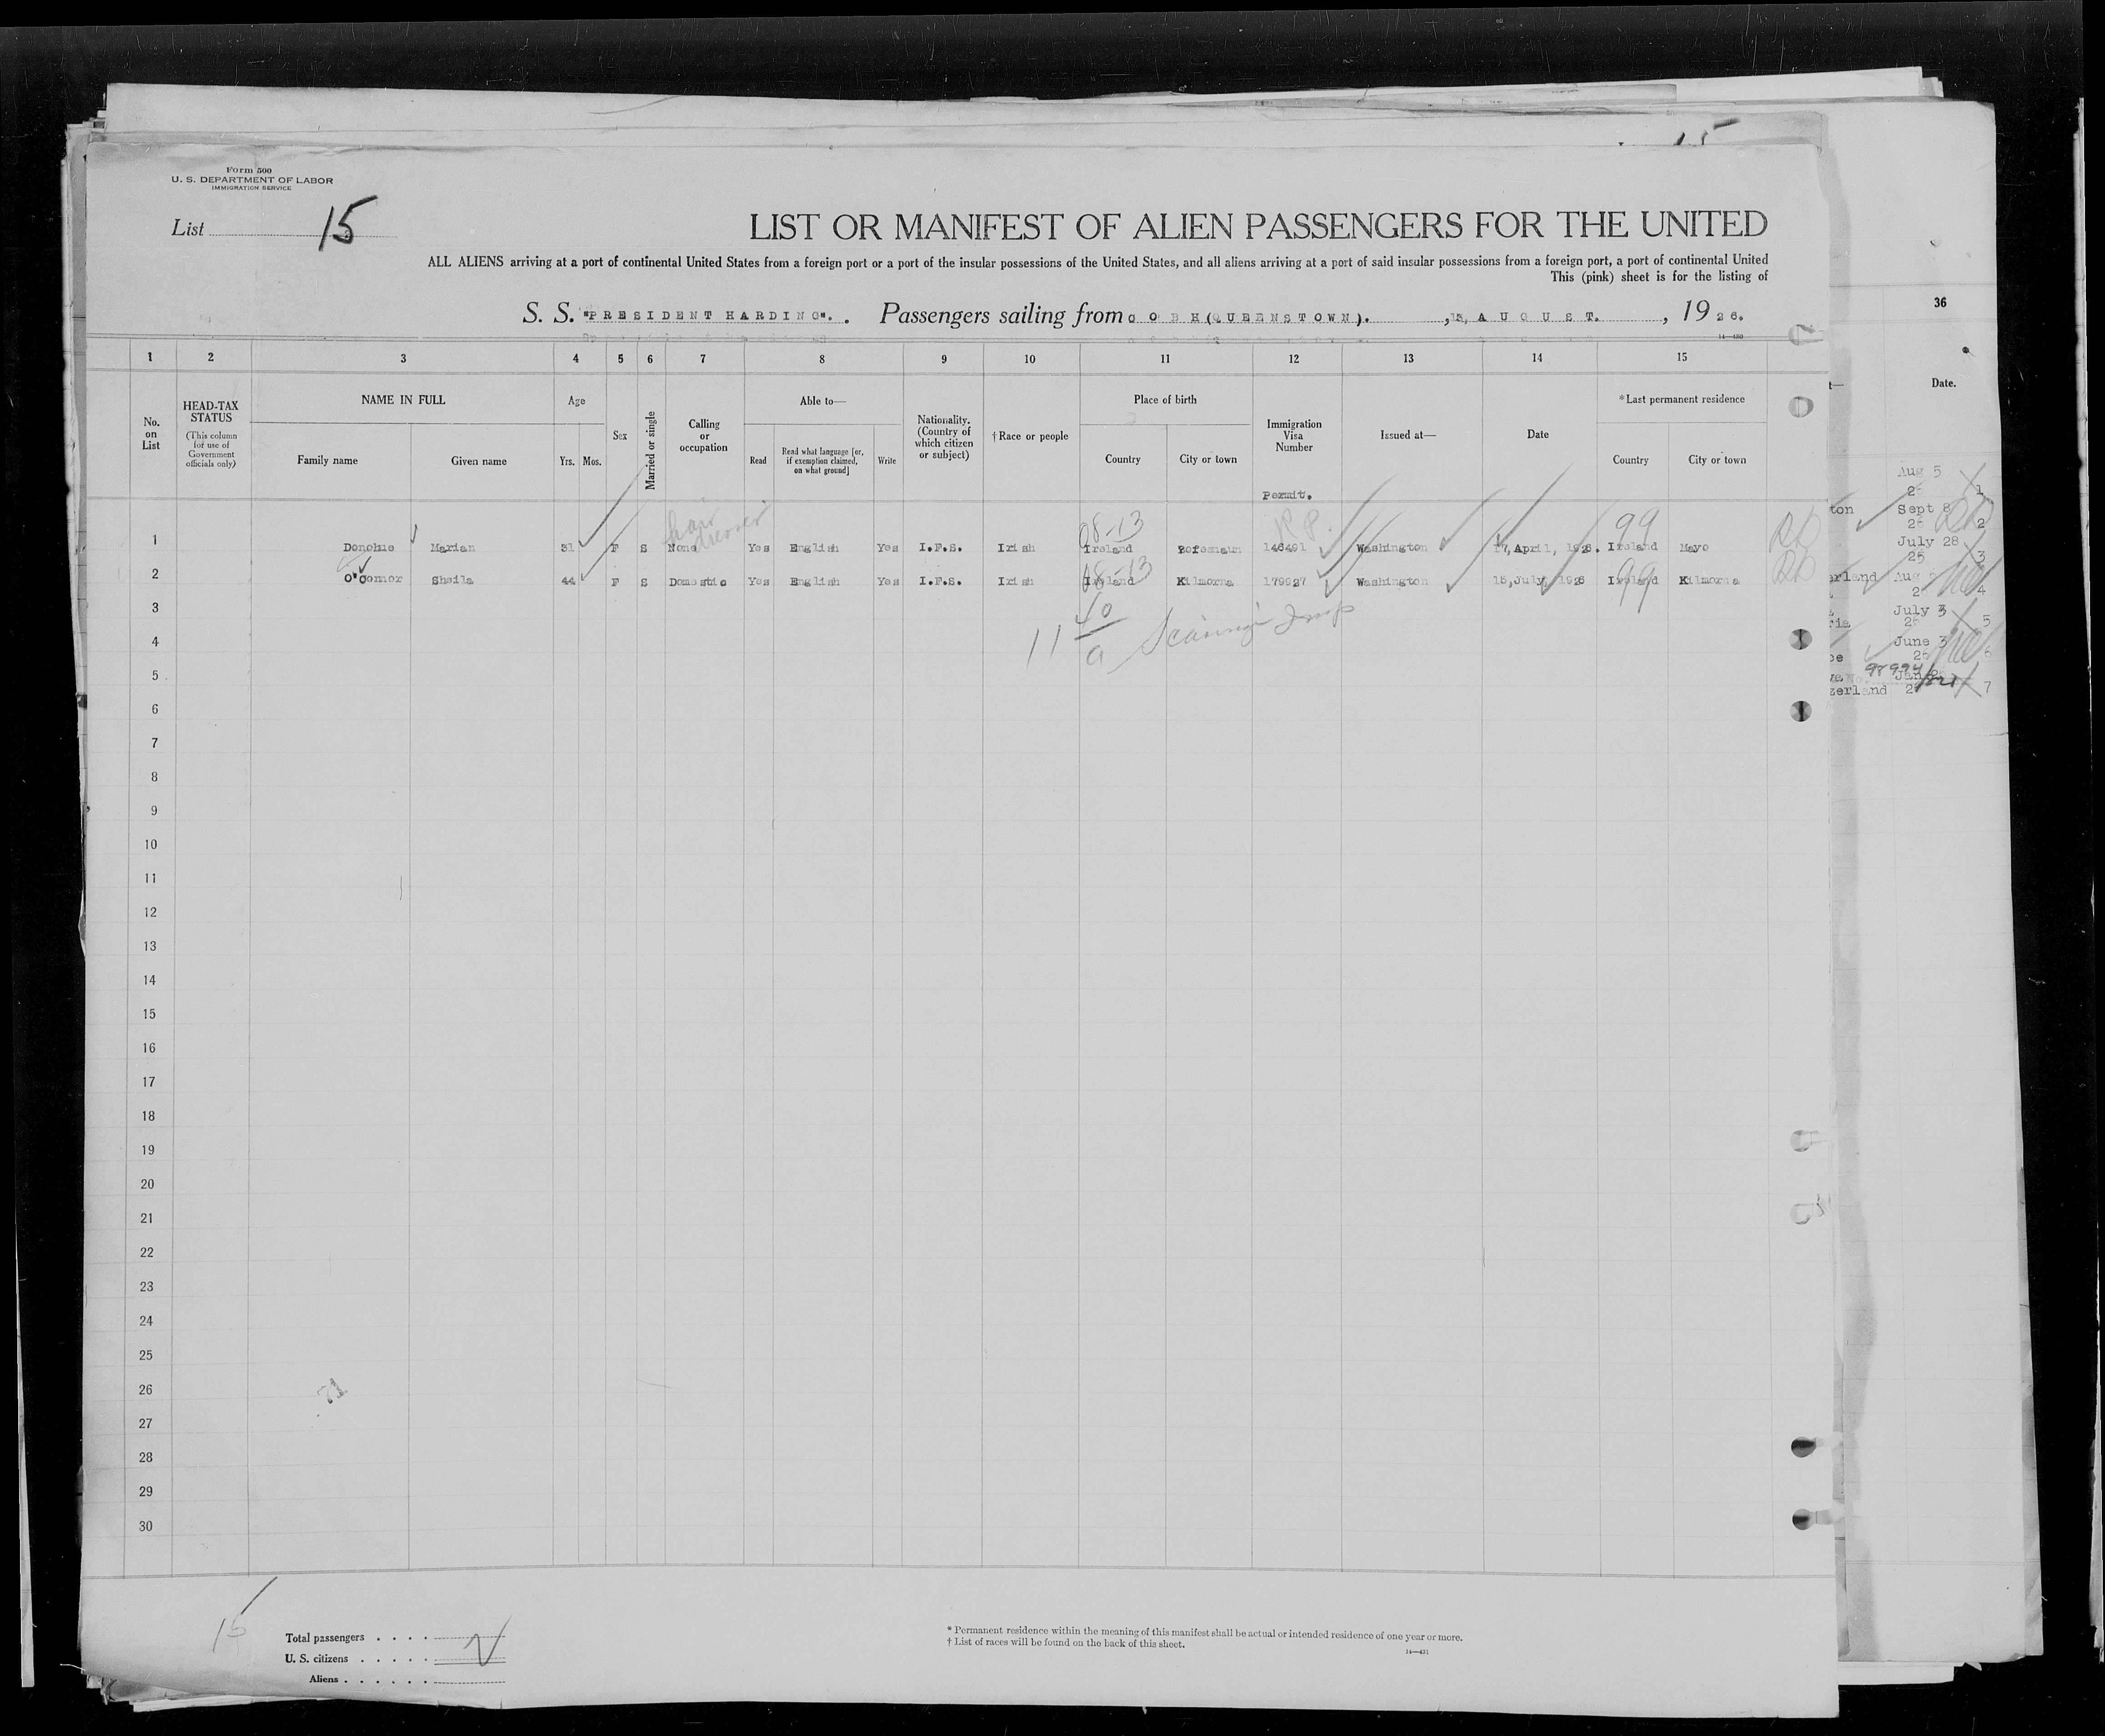 15
Form 500
U. S. DEPARTMENT OF LABOR
IMMIGRATION SERVICE
List 15
LIST OR MANIFEST OF ALIEN PASSENGERS FOR THE UNITED
ALL ALIENS arriving at a port of continental United States from a foreign port or a port of the insular possessions of the United States, and all aliens arriving at a port of said insular possessions from a foreign port, a port of continental United
This (pink) sheet is for the listing of
S. S. "PRESIDENT HARDING". Passengers sailing from COBH(QUEENSTOWN). , AUGUST. , 1926.
14—430
1 2 3 4 5 6 7 8 9 10 11 12 13 14 15 36
No. on List
HEAD-TAX STATUS (This column for use of Government officials only)
NAME IN FULL
Family name Given name
Age
Yrs. Mos.
Sex
Married or single
Calling or occupation
Able to—
Read Read what language [or, if exemption claimed, on what ground] Write
Nationality. (Country of which citizen or subject)
† Race or people
Place of birth
Country City or town
Immigration Visa Number
Permit.
Issued at—
Date
* Last permanent residence
Country City or town
Date.
hair dresser 08-13 R P. 99
1 Donohue Marian 31 F S None Yes English Yes I.F.S. Irish Ireland 146491 Washington 17, April, 1926. Ireland Mayo
08-13 99
2 O'Connor Sheila 44 F S Domestic Yes English Yes I.F.S. Irish Ireland Kilmorna 179927 Washington 15, July, 1926 Ireland Kilmorna
3
4
5
6
7
8
9
10
11
12
13
14
15
16
17
18
19
20
21
22
23
24
25
26
27
28
29
30
71
Aug 5
26 1
ton Sept 8
26 2
July 28
25 3
erland Aug
4
July 3
26 5
June 3
26 6
zerland 7
15
Total passengers
U. S. citizens
Aliens
* Permanent residence within the meaning of this manifest shall be actual or intended residence of one year or more.
† List of races will be found on the back of this sheet.
14—431